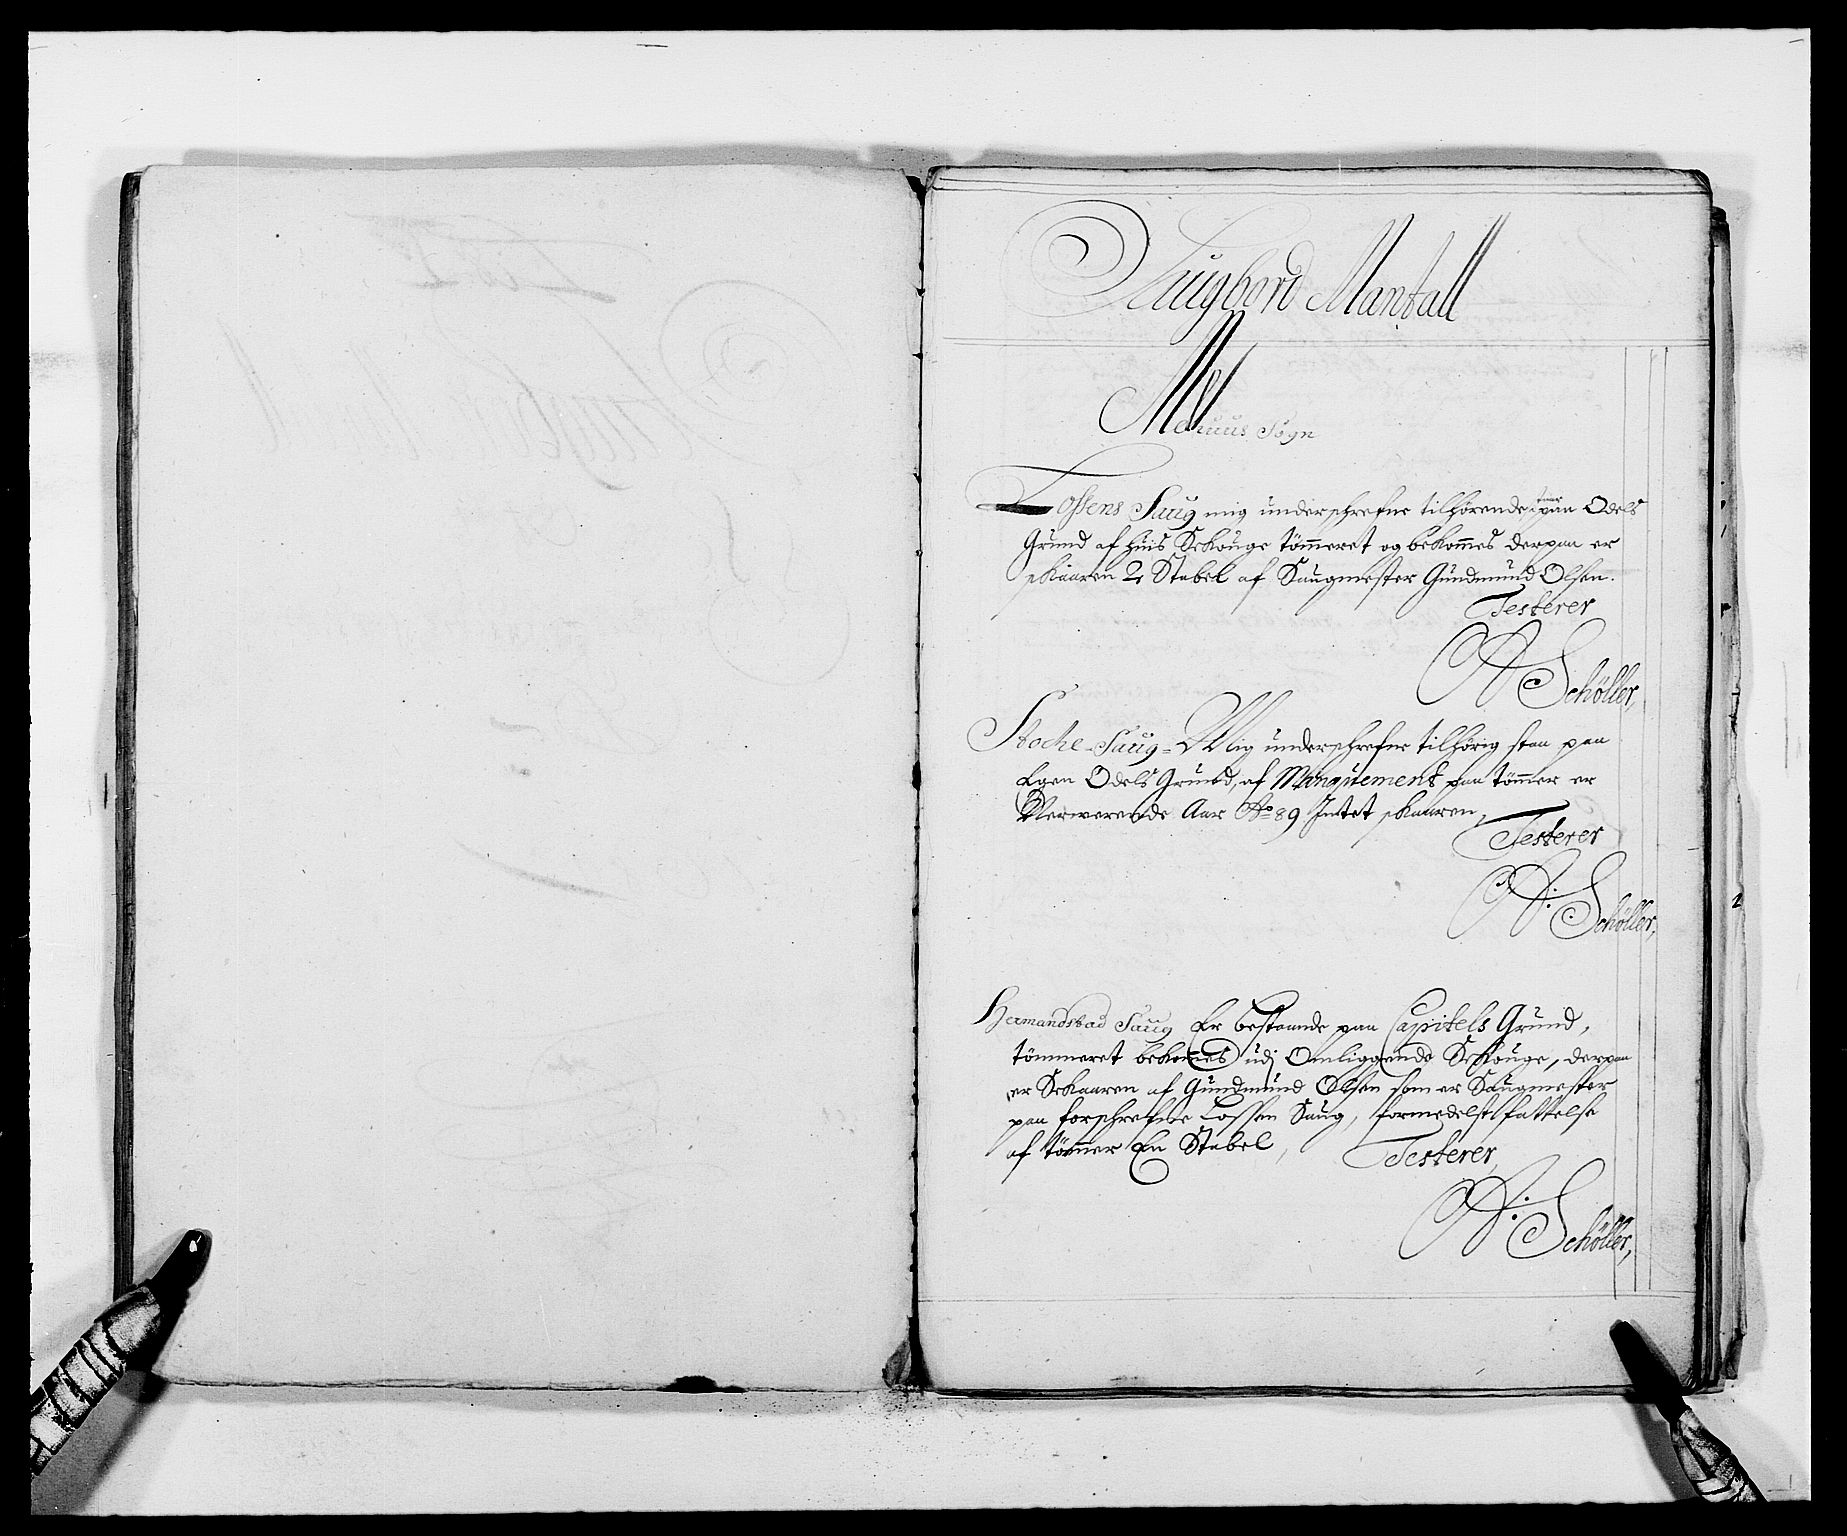 Saugbord Mantall
Melhuus Sogn
Lossens Saug mig underschrefne tilhørende, staar paa Odels
Grund af huis Schouge tømmeret og bekommes derpaa er
skaaren 2 Stabel af Saugmester Gundmund Olsen.
Testerer
A Schöller,
Stoche Saug - Mig underschrefne tilhørig staa paa
Egen Odels Grund, af Manquement paa tømmer er
Nerwerende Aar Ao 89 Intet skaaren,
Testerer
A: Schöller,
Hermandstad Saug Er bestaaende paa Capitels Grund,
tømmeret bekomes udj Omliggende Schouge, derpaa
er Schaaren af Gundmund Olsen som er Saugmester
paa forschrefne Lossen Saug, formedelst fattelse
af tømmer En Stabel,
Testerer,
A: Schöller,